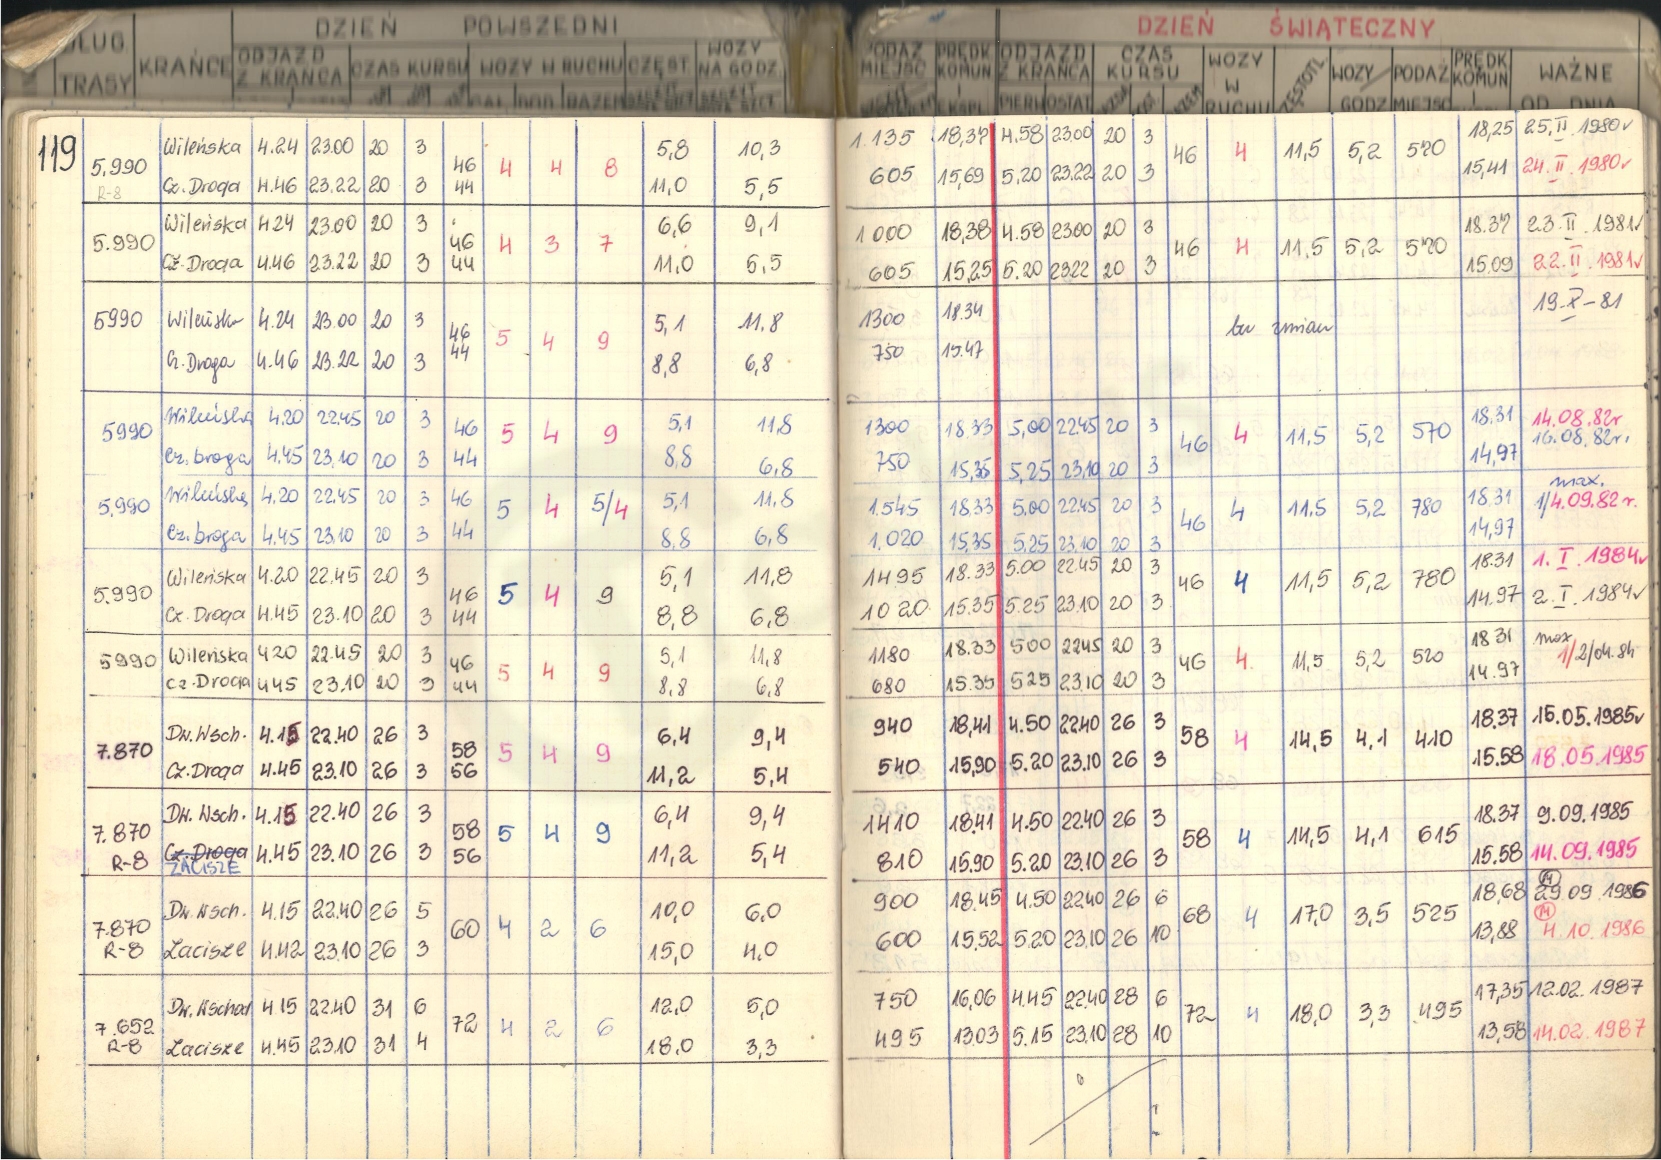 DZIEŃ POWSZEDNI DZIEŃ ŚWIĄTECZNY
DŁUG. TRASY KRAŃCE ODJAZD Z KRAŃCA CZAS KURSU WOZY W RUCHU CZĘST. WOZY NA GODZ. PODAŻ MIEJSC PRĘDK KOMUN I EKSPL. ODJAZD Z KRAŃCA CZAS KURSU WOZY W RUCHU CZĘSTOTL. WOZY GODZ PODAŻ MIEJSC PRĘDK KOMUN I WAŻNE OD DNIA
PIERW OSTAT
119
Wileńska 4.24 23.00 20 3 5,8 10,3 1.135 18,37 4.58 23.00 20 3 18,25 25.II.1980
5.990 46 4 4 8 46 4 11,5 5,2 520
R-8 Cz. Droga 4.46 23.22 20 3 44 11,0 5,5 605 15,69 5,20 23.22 20 3 15,41 24.II.1980
Wileńska 4.24 23.00 20 3 6,6 9,1 1000 18,38 4.58 23.00 20 3 18.37 23.II.1981
5.990 46 4 3 7 46 4 11,5 5,2 520
Cz. Droga 4.46 23.22 20 3 44 11,0 5,5 605 15,25 5.20 23.22 20 3 15,09 22.II.1981
5990 Wileńska 4.24 23.00 20 3 46 5 4 9 5,1 11,8 1300 18.34 19-X-81
bez zmian
Cz. Droga 4.46 23.22 20 3 44 8,8 6,8 750 15.47
5990 Wileńska 4.20 22.45 20 3 46 5 4 9 5,1 11,8 1300 18.33 5,00 22.45 20 3 46 4 11,5 5,2 570 18.31 14.08.82r
16.08.82r.
Cz. Droga 4.45 23.10 20 3 44 8,8 6,8 750 15,35 5,25 23.10 20 3 14,97
max.
5.990 Wileńska 4.20 22.45 20 3 46 5 4 5/4 5,1 11,8 1.545 18.33 5,00 22.45 20 3 46 4 11,5 5,2 780 18.31 1/4.09.82 r.
Cz. Droga 4.45 23.10 20 3 44 8,8 6,8 1.020 15,35 5.25 23.10 20 3 14,97
Wileńska 4.20 22.45 20 3 5,1 11,8 1495 18.33 5.00 22.45 20 3 18.31 1.I.1984
5.990 46 5 4 9 46 4 11,5 5,2 780
Cz. Droga 4.45 23.10 20 3 44 8,8 6,8 1020 15.35 5.25 23.10 20 3 14.97 2.I.1984
5990 Wileńska 4.20 22.45 20 3 46 5 4 9 5,1 11,8 1180 18.33 5.00 22.45 20 3 46 4 11,5 5,2 520 18.31 max 1/2/04.84
Cz. Droga 4.45 23.10 20 3 44 8,8 6,8 680 15.35 5.25 23.10 20 3 14.97
Dw. Wsch. 4.15 22.40 26 3 6,4 9,4 940 18,41 4.50 22.40 26 3 18.37 15.05.1985
7.870 58 5 4 9 58 4 14,5 4,1 410
Cz. Droga 4.45 23.10 26 3 56 11,2 5,4 540 15,90 5.20 23.10 26 3 15.58 18.05.1985
Dw. Wsch. 4.15 22.40 26 3 6,4 9,4 1410 18.41 4.50 22.40 26 3 18.37 9.09.1985
7.870 58 5 4 9 58 4 14,5 4,1 615
R-8 Cz. Droga 4.45 23.10 26 3 56 11,2 5,4 810 15.90 5.20 23.10 26 3 15.58 14.09.1985
ZACISZE
Dw. Wsch. 4.15 22.40 26 5 10,0 6,0 900 18.45 4.50 22.40 26 6 18,68 29.09.1986
7.870 60 4 2 6 68 4 17,0 3,5 525
R-8 Zacisze 4.42 23.10 26 3 15,0 4,0 600 15,52 5.20 23.10 26 10 13,88 4.10.1986
Dw. Wschod 4.15 22.40 31 6 12,0 5,0 750 16,06 4.45 22.40 28 6 17,35 12.02.1987
7.652 72 4 2 6 72 4 18,0 3,3 495
R-8 Zacisze 4.45 23.10 31 4 18,0 3,3 495 13.03 5.15 23.10 28 10 13,58 14.02.1987